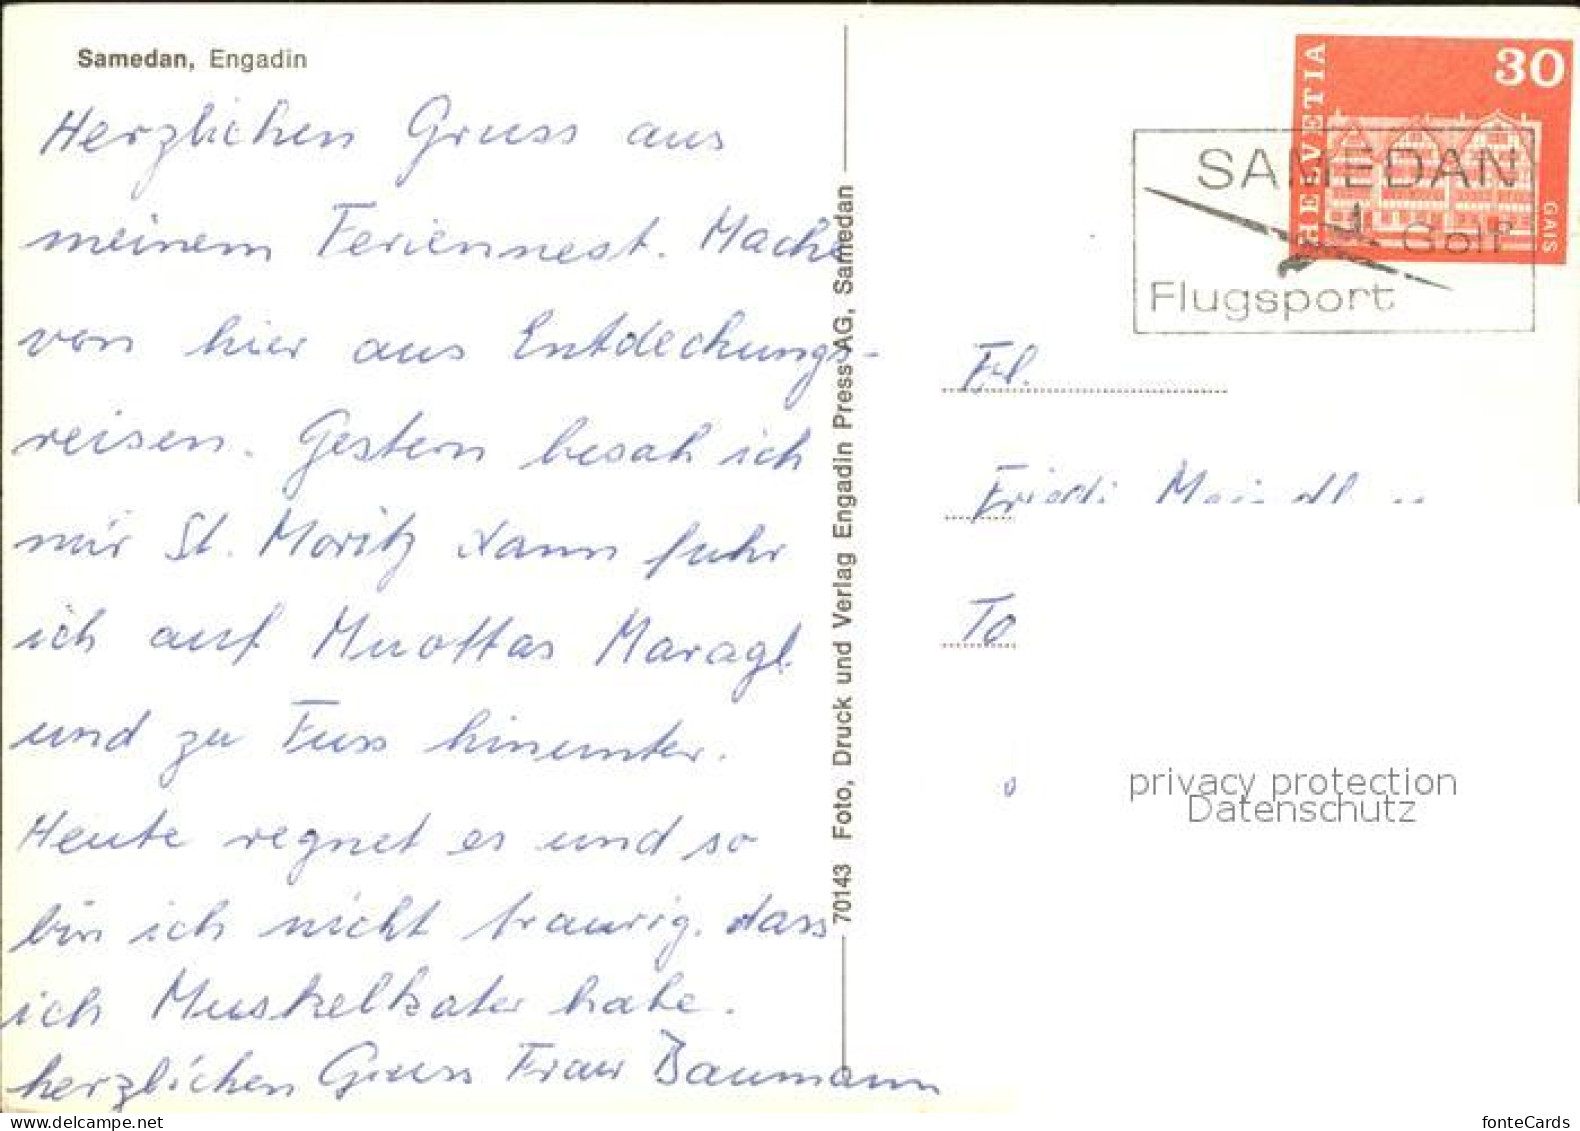 Samedan, Engadin
Herzlichen Gruss aus
meinem Feriennest. Mache
von hier aus Entdeckungs-
reisen. Gestern besah ich
mir St. Moritz dann fuhr
ich auf Muottas Maragl
und zu Fuss hinunter.
Heute regnet es und so
bin ich nicht traurig, dass
ich Muskelkater habe.
herzlichen Gruss Frau Baumann
70143 Foto, Druck und Verlag Engadin Press AG, Samedan
HELVETIA
30
GAIS
SAMEDAN
Golf
Flugsport
Frl.
To
privacy protection
Datenschutz
fonteCards